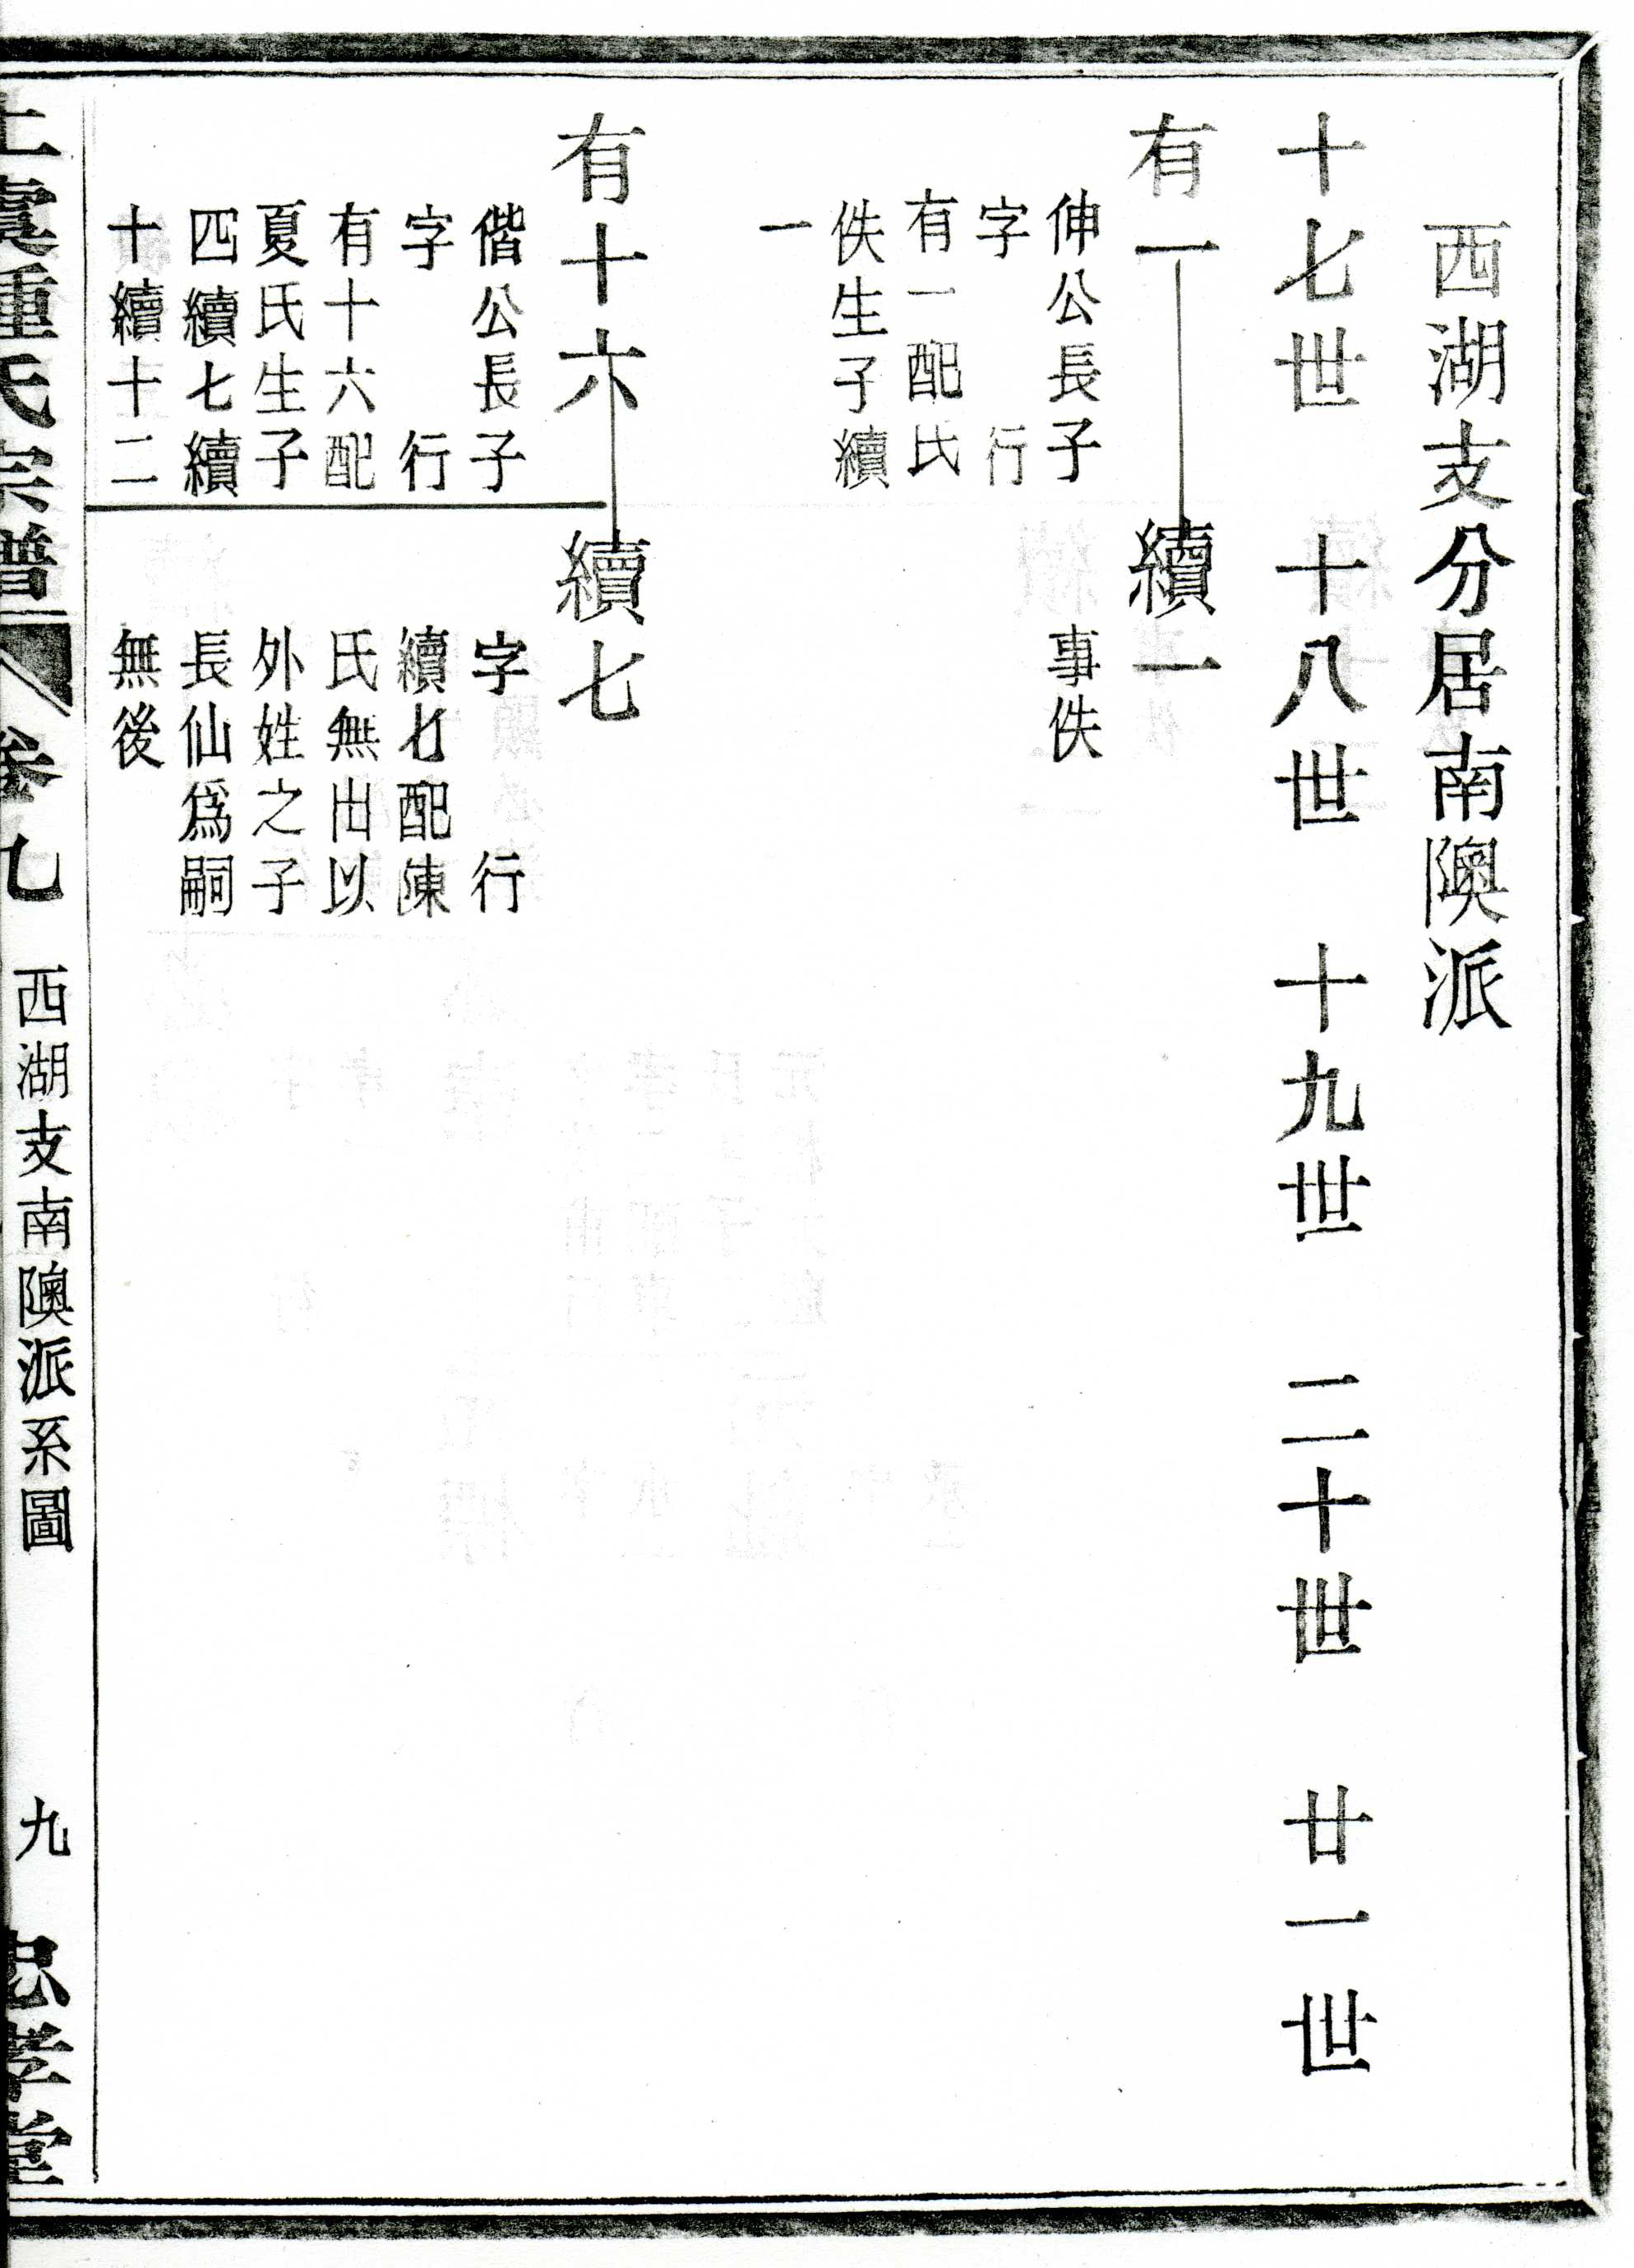 西湖支分居南隩派
十七世 十八世 十九世 二十世 廿一世
有一 續一
伸公長子 事佚
字 行
有一配氏
佚生子續
一
有十六 續七
偕公長子 字 行
字 行 續七配陳
有十六配 氏無出以
夏氏生子 外姓之子
四續七續 長仙爲嗣
十續十二 無後
上虞鍾氏宗譜 卷九 西湖支南隩派系圖 九 忠孝堂